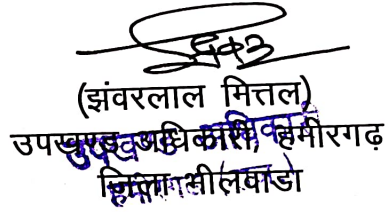 (झंवरलाल मित्तल)
उपखण्ड अधिकारी, हमीरगढ़
जिला भीलवाडा